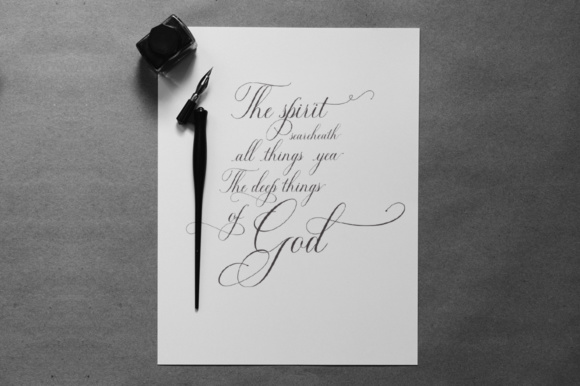 The spirit
searcheath
all things yea
The deep things
of God